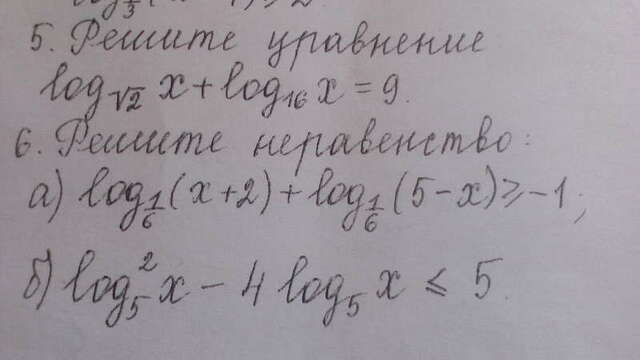 5. Решите уравнение
log√2 x + log16 x = 9.
6. Решите неравенство:
а) log1/6 (x+2) + log1/6 (5-x) ≥ -1;
б) log5² x - 4 log5 x ≤ 5.